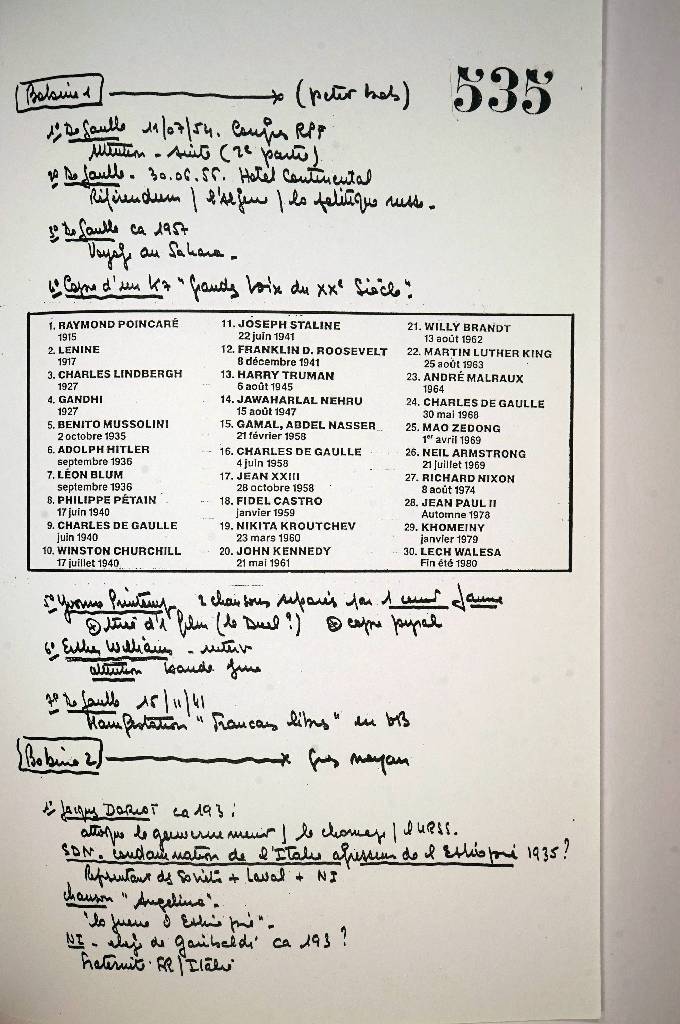 535
Bobine 1 (petit hob)
1° De Gaulle 11/07/54. Congrès RPF
Attention - suite (2e partie)
2° De Gaulle - 30.06.55. Hotel Continental
Référendum / l'Algérie / la politique russe.
3° De Gaulle ca 1957
Voyage au Sahara.
4° Copie d'un K7 "Grandes Voix du XXe Siècle".
1. RAYMOND POINCARÉ
1915
2. LENINE
1917
3. CHARLES LINDBERGH
1927
4. GANDHI
1927
5. BENITO MUSSOLINI
2 octobre 1935
6. ADOLPH HITLER
septembre 1936
7. LÉON BLUM
septembre 1936
8. PHILIPPE PÉTAIN
17 juin 1940
9. CHARLES DE GAULLE
juin 1940
10. WINSTON CHURCHILL
17 juillet 1940
11. JOSEPH STALINE
22 juin 1941
12. FRANKLIN D. ROOSEVELT
8 décembre 1941
13. HARRY TRUMAN
6 août 1945
14. JAWAHARLAL NEHRU
15 août 1947
15. GAMAL, ABDEL NASSER
21 février 1958
16. CHARLES DE GAULLE
4 juin 1958
17. JEAN XXIII
28 octobre 1958
18. FIDEL CASTRO
janvier 1959
19. NIKITA KROUTCHEV
23 mars 1960
20. JOHN KENNEDY
21 mai 1961
21. WILLY BRANDT
13 août 1962
22. MARTIN LUTHER KING
25 août 1963
23. ANDRÉ MALRAUX
1964
24. CHARLES DE GAULLE
30 mai 1968
25. MAO ZEDONG
1er avril 1969
26. NEIL ARMSTRONG
21 juillet 1969
27. RICHARD NIXON
8 août 1974
28. JEAN PAUL II
Automne 1978
29. KHOMEINY
janvier 1979
30. LECH WALESA
Fin été 1980
5° Yvonne Printemps 2 chansons séparées par 1 jaune
tiré d'1 film (le Duel?) copie pyral
6° Esther Williams -
attention bande fine
7° De Gaulle 15/11/41
Manifestation "Francais libres" en GB
Bobine 2 gros noyau
1° Jacques DORIOT ca 193:
attaque le gouvernement / le chomage / l'URSS.
SDN. condamnation de l'Italie agresseur de l'Ethiopie 1935?
Représentant des Soviets + Laval + NI
chanson "Angelina".
"la guerre d'Ethiopie".
NI - éloge de Garibaldi ca 193?
fraternité FR/Italie